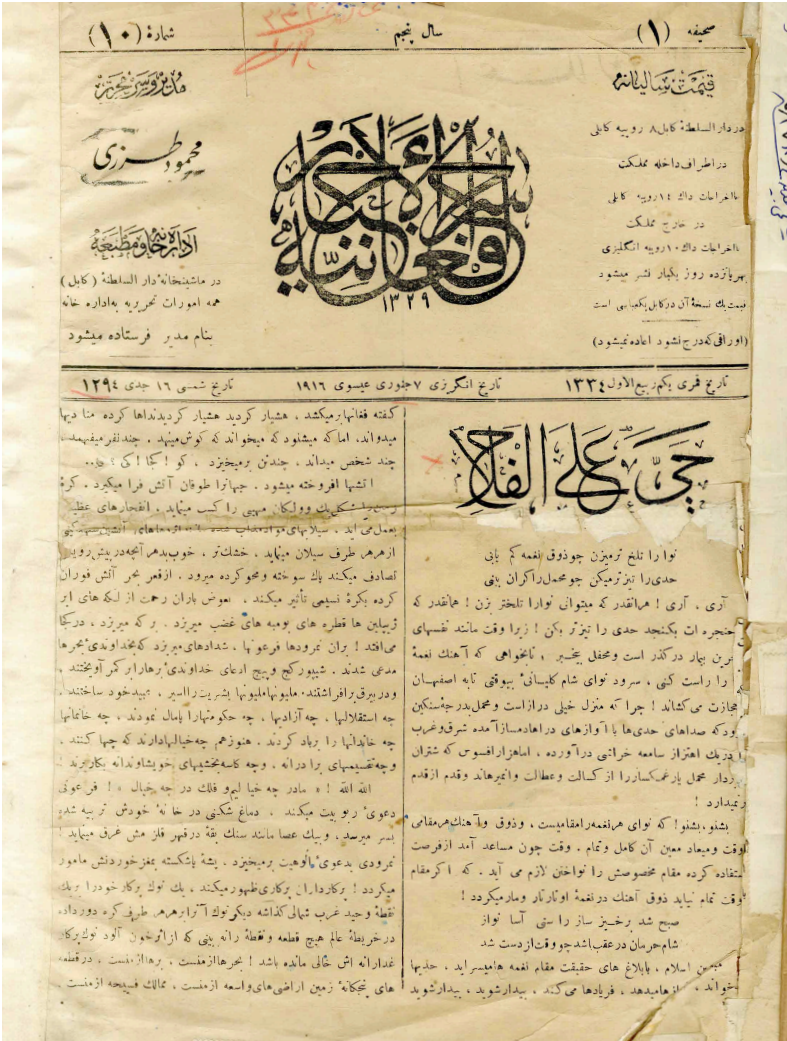 صحیفه (۱)
سال پنجم
شمارهٔ (۱۰)
قیمت سالیانه
در دار السلطنهٔ کابل ۸ روپیه کابلی
در اطراف داخله مملکت
با اخراجات داک ۱۴ روپیه کابلی
در خارج مملکت
با اخراجات داک ۱۰ روپیه انگلیزی
بهر پانزده روز یکبار نشر میشود
قیمت یک نسخهٔ آن در کابل یکعباسی است
(اوراقی که درج نشود اعاده نمیشود)
سراج الاخبار افغانیه
۱۳۲۹
مدیر و سر محرر
محمود طرزی
اداره خانه و مطبعه
در ماشینخانهٔ دار السلطنهٔ (کابل)
همه امورات تحریریه به اداره خانه
بنام مدیر فرستاده میشود
تاریخ قمری یکم ربیع الاول ۱۳۳۴
تاریخ انگریزی ۷ جنوری عیسوی ۱۹۱۶
تاریخ شمسی ۱۶ جدی ۱۲۹۴
حی علی الفلاح
نوا را تلخ تر میزن چو ذوق نغمه کم یابی
حدی را تیز تر میکن چو محمل را کران بینی
آری ، آری ! همانقدر که میتوانی نوا را تلختر بزن ! همانقدر که
حنجره ات بکنجد حدی را تیز تر بکن ! زیرا وقت مانند نفسهای
بیمار در گذر است و محفل بیخبر ، تا بخواهی که آهنک نغمهٔ
را راست کنی ، سرود نوای شام کلیسائی بیوقتی تا به اصفهان
حجازت می کشاند ! چرا که منزل خیلی دراز است و محمل بدرجهٔ سنکین
ود که صداهای حدی ها با آوازهای درا همدمساز آمده شرق و غرب
را در یک اهتزاز سامعه خراشی در آورده ، اما هزار افسوس که شتران
بردار محمل یار غمکسار را از کسالت و عطالت وا نمیرهاند و قدم از قدم
نمیدارد !
بشنو ، بشنو ! که نوای هر نغمه را مقامیست ، و ذوق و آهنک هر مقامی
وقت و میعاد معین آن کامل و تمام . وقت چون مساعد آمد از فرصت
استفاده کرده مقام مخصوصش را نواختن لازم می آید . که اکر مقام
وقت تمام نیابد ذوق آهنک در نغمهٔ او تار تار و مار میکردد !
صبح شد برخیز ساز راستی آسا نواز
شام حرمان در عقب باشد چو وقت از دست شد
مبین اسلام ، با بلاغ های حقیقت مقام نغمه ها میسراید ، حدیها
میخواند ، میدهد ، فریادها می کند ، بیدار شوید ، بیدار شوید
کفته فغانها بر میکشد ، هشیار کردید هشیار کردید نداها کرده منادیها
میدواند ، اما که میشنود که میخواند که کوش مینهد . چند نفر میفهمد ،
چند شخص میداند ، چند تن بر میخیزد . کو ! کجا ! کی ؟
آتشها افروخته میشود . جهانرا طوفان آتش فرا میکیرد . کرهٔ
زمین شکل یک وولکان مهیبی را کسب مینماید . انفجارهای
بعمل می آید . سیلابهای مواد
از هر هر طرف سیلان مینماید ، خشک تر ، خوب بد هر آنچه در پیش روید
تصادف میکند پاک سوخته و محو کرده میرود . از قعر بحر آتش فوران
کرده بکرهٔ نسیمی تأثیر میکند ، بعوض باران رحمت از لکه های ابر
زیپلین ها قطره های بومبه های غضب میریزد . بر که میریزد ، در کجا
می افتد ! بران نمرودها فرعونها ، شدادهای میریزد که بخداوندئ بحرها
مدعی شدند . شیپور کج و پیچ ادعای خداوندئ برها را بر کمر آویختند ،
و در بیرق بر افراشتند . ملیونها ملیونها بشریت را اسیر ، عبید خود ساختند .
چه استقلالها ، چه آزادیها ، چه حکومتها را پامال نمودند ، چه خانمانها
چه خاندانها را برباد کردند . هنوز هم چه خیالها دارند که چها کنند .
و چه تقسیمهای برادرانه . و چه کاسه بخشیهای خویشاوندانه بکار برند !
الله الله ! « ما در چه خیالیم و فلک در چه خیال » ! فرعونی
دعوئ ربوبیت میکند ، دماغ شکنی در خانهٔ خودش تربیه شده
بسر میرسد ، و بیک عصا مانند سنک بقهٔ در قهر قلزمش غرق مینماید !
نمرودی بدعوئ الوهیت بر میخیزد . پشهٔ پا شکسته بمغز خوردنش مامور
میکردد ! پرکارداران پرکاری ظهور میکند ، یک نوک پرکار خود را بریک
نقطهٔ وحید غرب شمالی کذاشته دیکر نوک آنرا بر هر هر طرف کره دور داده
در خریطهٔ عالم هیچ قطعه و نقطهٔ را نه بینی که از اثر خون آلود نوک پرکار
غدارانه اش خالی مانده باشد ! بحرها از منست ، برها از منست ، در قطعه
های پنجکانهٔ زمین اراضی های واسعه از منست ، ممالک فسیحه از منست .